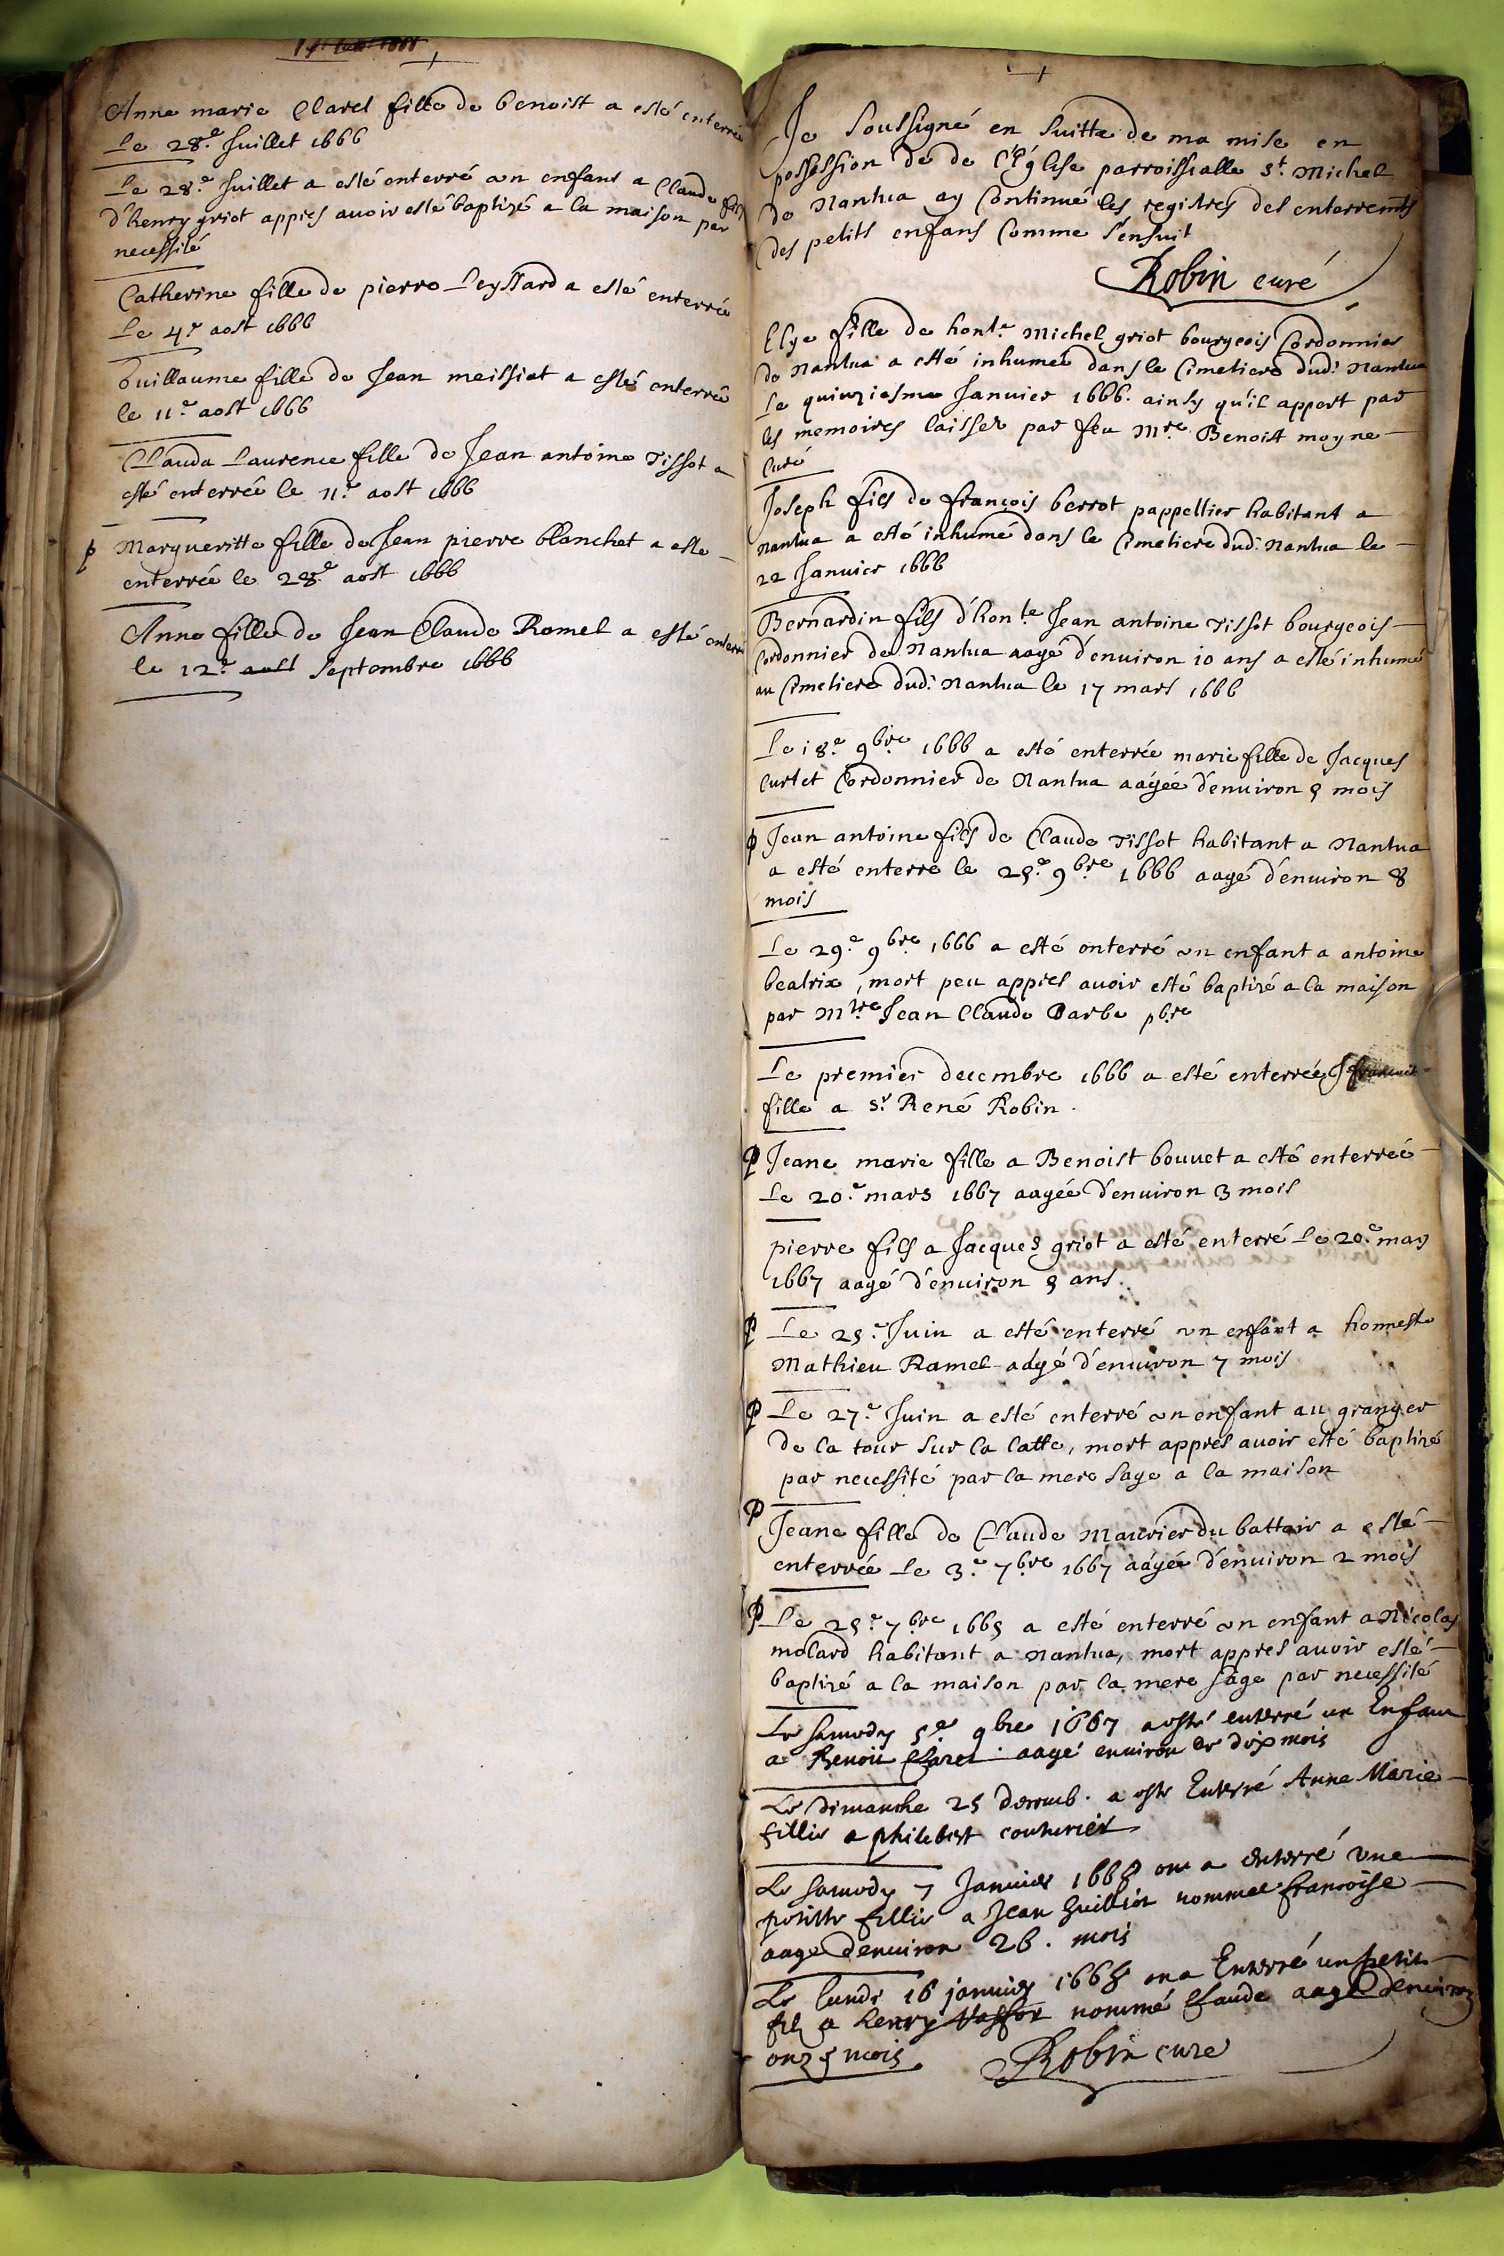 Anne marie Clarel fille de benoist a esté enterrée
Le 28.e Juillet 1666
Le 28.e Juillet a esté enterré un enfant a Claude fils
d'henry griot appres avoir esté baptizé a la maison par
necessité
Catherine fille de pierre Leyssard a esté enterrée
Le 4.e aost 1666
Guillaume fille de Jean meissiat a esté enterrée
le 11.e aost 1666
Clauda Laurence fille de Jean antoine Tissot a
esté enterrée le 11.e aost 1666
Margueritte fille de Jean pierre blanchet a esté
enterrée le 28.e aost 1666
Anne fille de Jean Claude Ramel a esté enterrée
le 12.e aost Septembre 1666
Je Soussigné en Suitte de ma mise en
possession de de L'Église parroissialle St. Michel
de Nantua ay Continué les registres des enterremts
des petits enfans Comme s'ensuit
Robin curé
Elye fille de hont.e Michel griot bourgeois Cordonnier
de Nantua a esté inhumée dans le Cimetiere dud. Nantua
Le quinziesme Janvier 1666. ainsy qu'il appert par
les memoires laissez par feu Mre. Benoist moyne
Curé
Joseph fils de françois berrot pappellier habitant a
Nantua a esté inhumé dans le Cimetiere dud. Nantua le
22 Janvier 1666
Bernardin fils d'hon.te Jean antoine Tissot bourgeois
Cordonnier de Nantua aagé d'environ 10 ans a esté inhumé
au Cimetiere dud. Nantua le 17 mars 1666
Le 18.e 9bre 1666 a esté enterrée marie fille de Jacques
Curtet Cordonnier de Nantua aagée d'environ 5 mois
Jean antoine fils de Claude Tissot habitant a Nantua
a esté enterré le 25.e 9bre 1666 aagé d'environ 8
mois
Le 29.e 9bre 1666 a esté enterré un enfant a antoine
beatrix, mort peu appres avoir esté baptizé a la maison
par Mre Jean Claude Barbe pbre
Le premier decembre 1666 a esté enterrée
fille a Sr. René Robin.
Jeane marie fille a Benoist bouvet a esté enterrée
Le 20.e mars 1667 aagée d'environ 3 mois
pierre fils a Jacques griot a esté enterré Le 20.e may
1667 aagé d'environ 5 ans.
Le 25.e Juin a esté enterré un enfant a honneste
Mathieu Ramel aagé d'environ 7 mois
Le 27.e Juin a esté enterré un enfant au granger
de la tour sur la latte, mort appres avoir esté baptizé
par necessité par la mere sage a la maison
Jeane fille de Claude Maurier du battoir a esté
enterrée Le 3.e 7bre 1667 aagée d'environ 2 mois
Le 25.e 7bre 1665 a esté enterré un enfant a Nicolas
molard habitant a Nantua, mort appres avoir esté
baptizé a la maison par la mere sage par necessité
Le samedy 5.e 9bre 1667 a esté enterré un Enfant
a Benoit Clarel aagé environ de dix mois
Le Dimanche 25 Decemb. a esté Enterré Anne Marie
fillie a philibert couturier
Le samedy 7 Janvier 1668 on a enterré une
petitte fillie a Jean Guilliot nommée françoise
aage d'environ 26. mois
Le lundi 16 janvier 1668 on a Enterré un petit
filz a henry nommé Claude aagé d'environ
onze mois
Robin cure